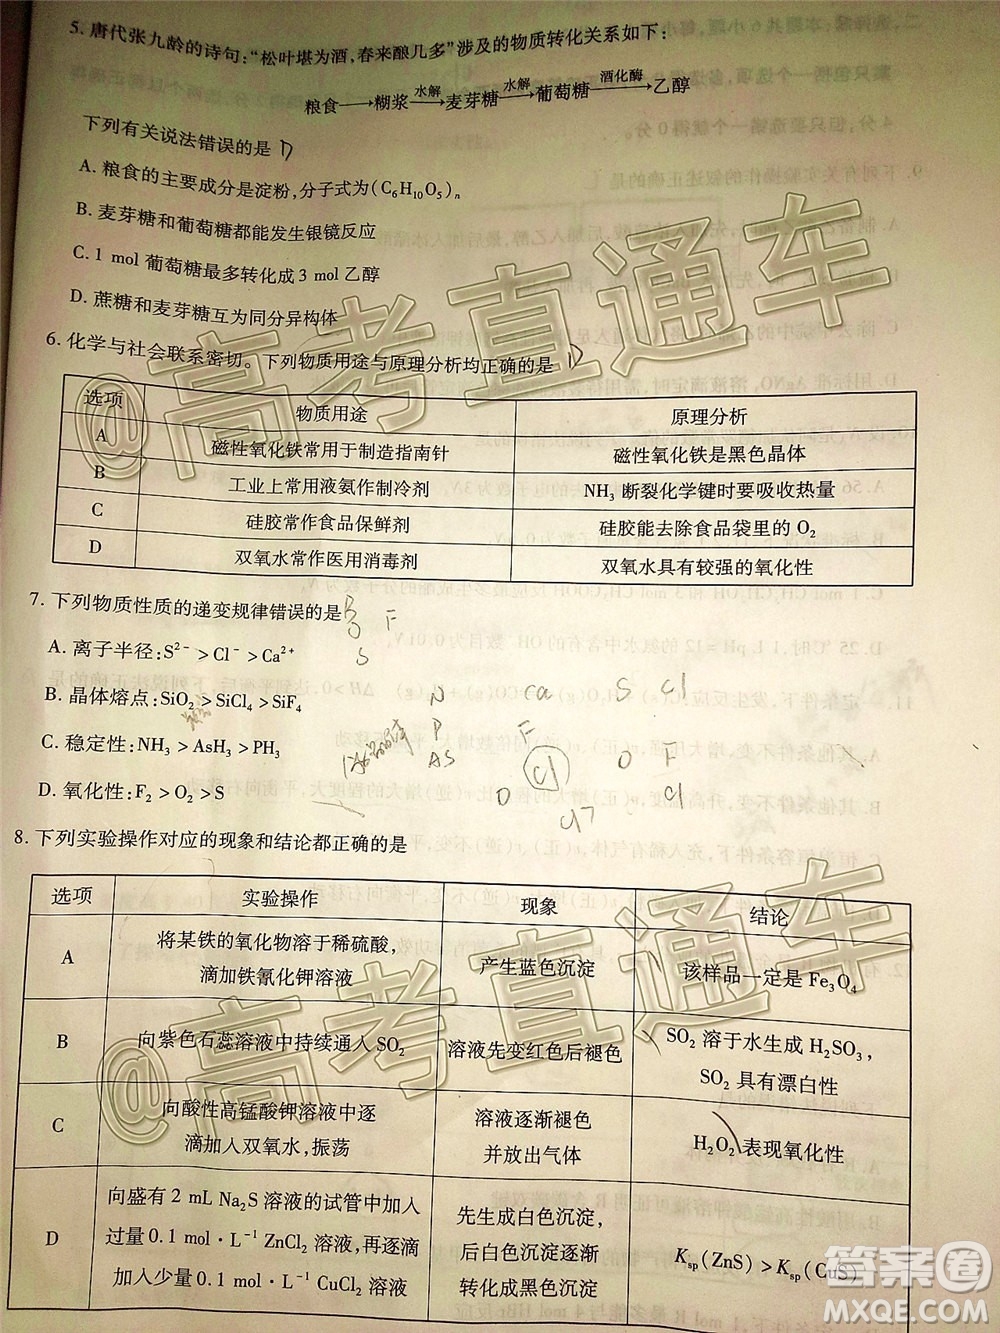 5. 唐代张九龄的诗句：“松叶堪为酒,春来酿几多”涉及的物质转化关系如下：
粮食→糊浆 水解→ 麦芽糖 水解→ 葡萄糖 酒化酶→ 乙醇
下列有关说法错误的是 D
A. 粮食的主要成分是淀粉,分子式为(C6H10O5)n
B. 麦芽糖和葡萄糖都能发生银镜反应
C. 1 mol 葡萄糖最多转化成 3 mol 乙醇
D. 蔗糖和麦芽糖互为同分异构体
6. 化学与社会联系密切。下列物质用途与原理分析均正确的是 D
选项 物质用途 原理分析
A 磁性氧化铁常用于制造指南针 磁性氧化铁是黑色晶体
B 工业上常用液氨作制冷剂 NH3 断裂化学键时要吸收热量
C 硅胶常作食品保鲜剂 硅胶能去除食品袋里的 O2
D 双氧水常作医用消毒剂 双氧水具有较强的氧化性
@高考直通车
7. 下列物质性质的递变规律错误的是 B
A. 离子半径:S2- > Cl- > Ca2+
B. 晶体熔点:SiO2 > SiCl4 > SiF4
C. 稳定性:NH3 > AsH3 > PH3
D. 氧化性:F2 > O2 > S
F
S
N Ca S Cl
P F
As Cl O F
O Cl
8. 下列实验操作对应的现象和结论都正确的是
选项 实验操作 现象 结论
A 将某铁的氧化物溶于稀硫酸, 滴加铁氰化钾溶液 产生蓝色沉淀 该样品一定是 Fe3O4
B 向紫色石蕊溶液中持续通入 SO2 溶液先变红色后褪色 SO2 溶于水生成 H2SO3, SO2 具有漂白性
C 向酸性高锰酸钾溶液中逐滴加入双氧水,振荡 溶液逐渐褪色并放出气体 H2O2 表现氧化性
D 向盛有 2 mL Na2S 溶液的试管中加入过量 0.1 mol·L-1 ZnCl2 溶液,再逐滴加入少量 0.1 mol·L-1 CuCl2 溶液 先生成白色沉淀,后白色沉淀逐渐转化成黑色沉淀 Ksp(ZnS) > Ksp(CuS)
@高考直通车
答案圈
MXQE.COM